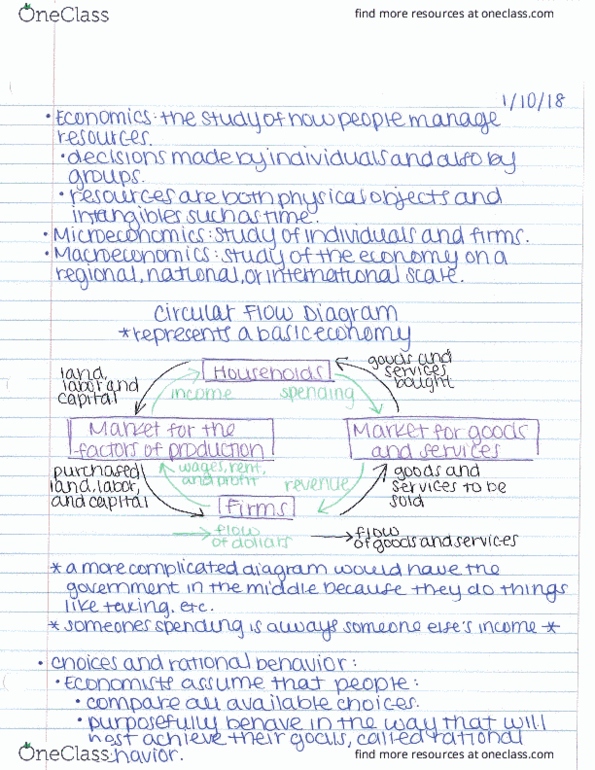 OneClass
find more resources at oneclass.com
1/10/18
• Economics: the study of how people manage
resources.
• decisions made by individuals and also by
groups.
• resources are both physical objects and
intangibles such as time.
• Microeconomics: study of individuals and firms.
• Macroeconomics: study of the economy on a
regional, national, or international scale.
Circular Flow Diagram
*represents a basic economy
land,
labor and
capital
Households
goods and
services
bought
income
spending
Market for the
factors of production
Market for goods
and services
purchased
land, labor,
and capital
wages, rent,
and profit
revenue
goods and
services to be
sold
Firms
→ flow
of dollars
→ flow
of goods and services
* a more complicated diagram would have the
government in the middle because they do things
like taxing, etc.
* someones spending is always someone else's income *
• choices and rational behavior:
• Economists assume that people:
• compare all available choices.
• purposefully behave in the way that will
best achieve their goals, called rational
havior.
OneClass
find more resources at oneclass.com